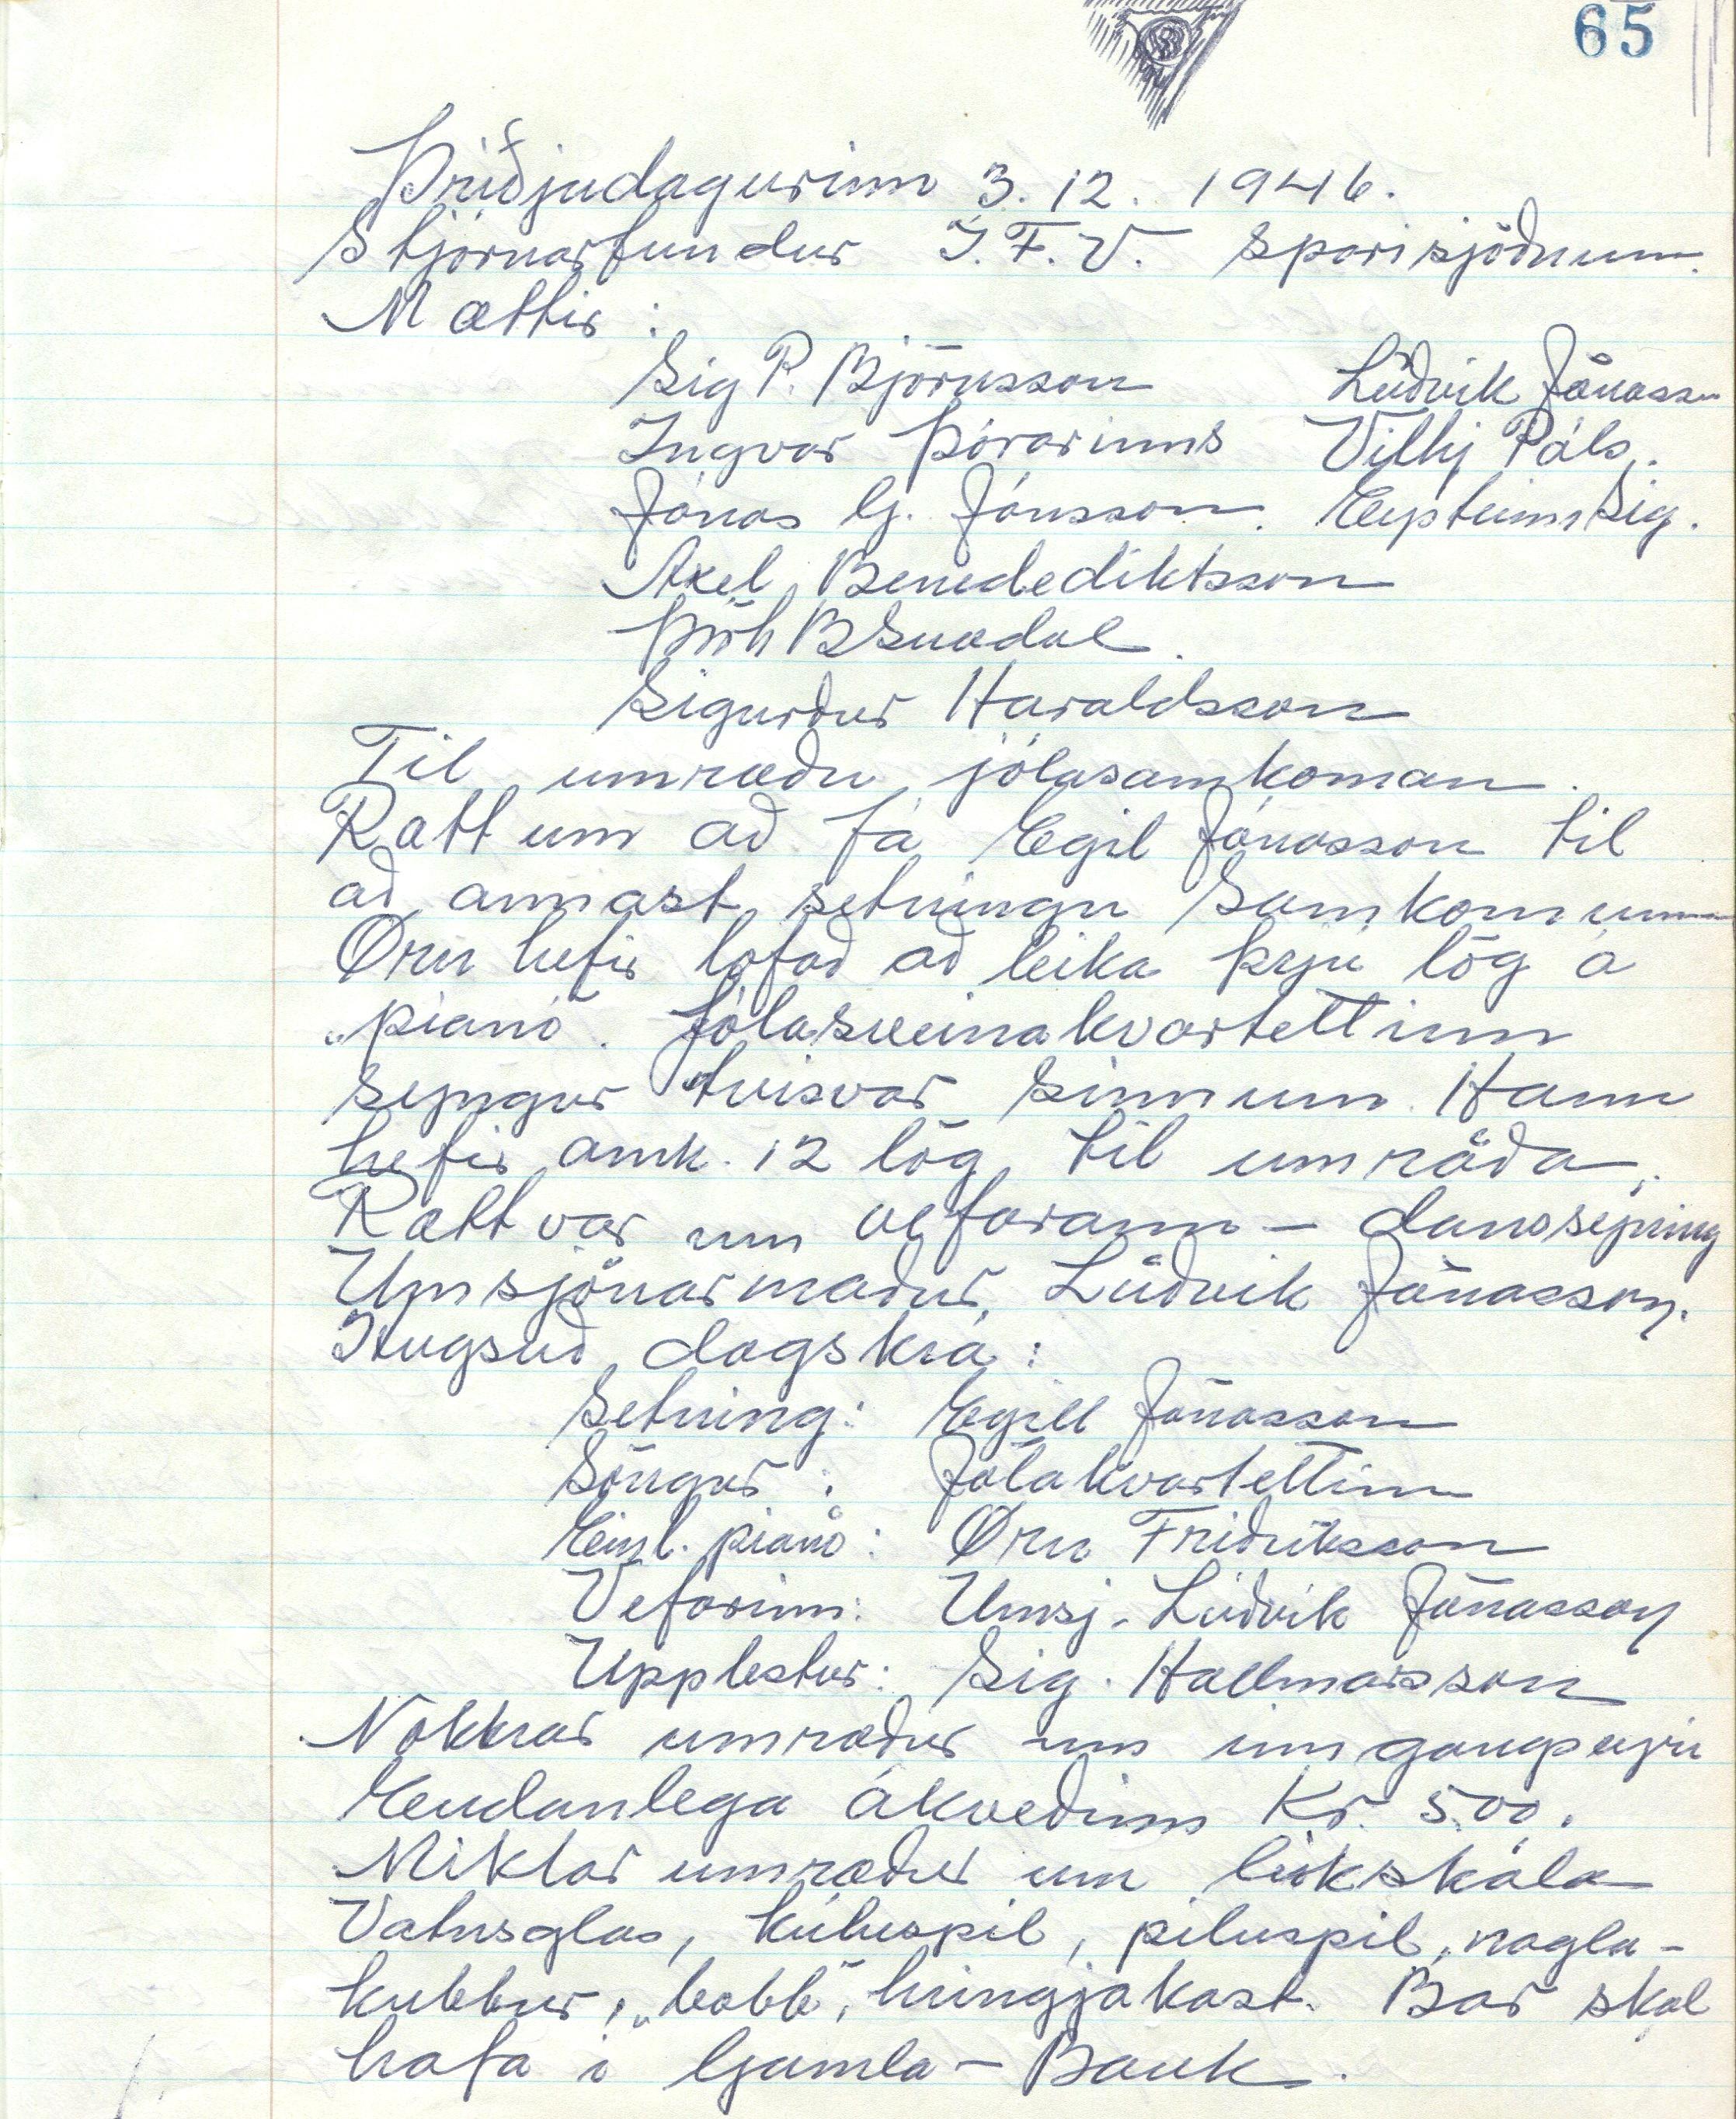 65
Þriðjudagurinn 3.12. 1946.
Stjórnarfundur Í.F.V. Sparisjóðnum.
Mættir:
Sig P. Björnsson Lúðvik Jónasson
Ingvar Þórarinns Vilhj Páls.
Jónas G. Jónsson. Eysteinn Sig.
Axel Benedediktsson
Þórh B Snædal.
Sigurður Haraldsson
Til umræðu jólasamkoman.
Rætt um að fá Egil Jónasson til
að annast setningu samkomunnar
Örn hefir lofað að leika þrjú lög á
„pianó". Jólasveinakvartettinn
syngur tvisvar sinnum. Hann
hefir amk. 12 lög til umráða.
Rætt var um vefarann – danssýning
Umsjónarmaður Lúðvik Jónasson.
Hugsuð dagskrá:
Setning: Egill Jónasson
Söngur: Jólakvartettinn
Einl. pianó: Örn Friðriksson
Vefarinn: Umsj. Lúðvik Jónasson
Upplestur: Sig. Hallmarsson
Nokkrar umræður um inngangseyri
Endanlega ákveðinn Kr. 5.00.
Miklar umræður um leikskála
Vatnsglas, kúluspil, piluspil, nagla-
kubbur, „bobb", hringjakast. Bar skal
hafa i Gamla-Bauk.